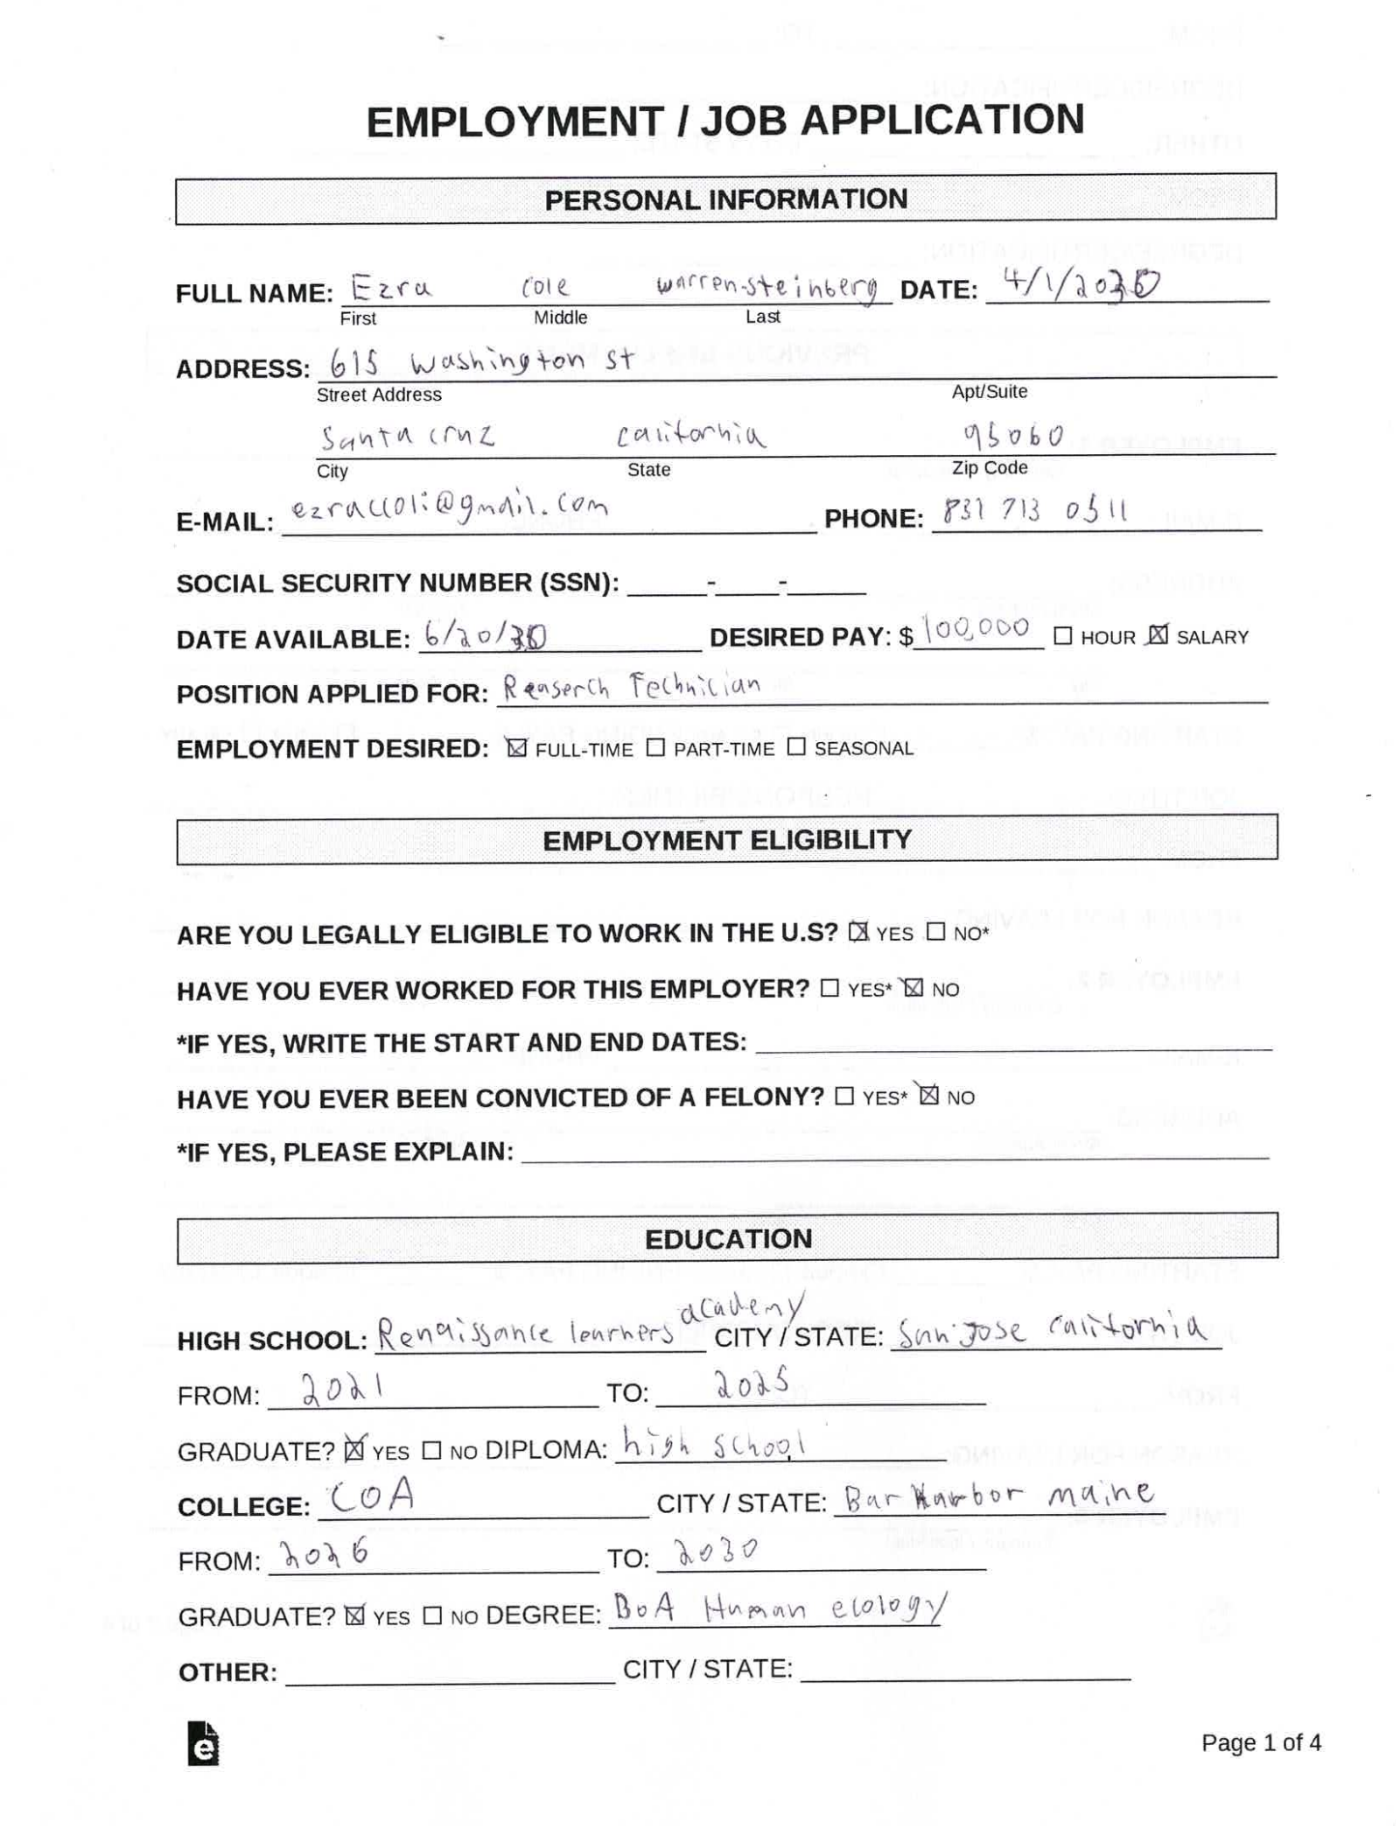 EMPLOYMENT / JOB APPLICATION
PERSONAL INFORMATION
FULL NAME: Ezra cole warren-steinberg DATE: 4/1/2030
First Middle Last
ADDRESS: 615 washington st
Street Address Apt/Suite
Santa cruz california 95060
City State Zip Code
E-MAIL: @gmail.com PHONE: 831 713 0511
SOCIAL SECURITY NUMBER (SSN): - -
DATE AVAILABLE: 6/20/30 DESIRED PAY: $ 100,000 ☐ HOUR ☒ SALARY
POSITION APPLIED FOR: Reaserch Technician
EMPLOYMENT DESIRED: ☒ FULL-TIME ☐ PART-TIME ☐ SEASONAL
EMPLOYMENT ELIGIBILITY
ARE YOU LEGALLY ELIGIBLE TO WORK IN THE U.S? ☒ YES ☐ NO*
HAVE YOU EVER WORKED FOR THIS EMPLOYER? ☐ YES* ☒ NO
*IF YES, WRITE THE START AND END DATES:
HAVE YOU EVER BEEN CONVICTED OF A FELONY? ☐ YES* ☒ NO
*IF YES, PLEASE EXPLAIN:
EDUCATION
HIGH SCHOOL: Renaissance learners academy CITY / STATE: San jose california
FROM: 2021 TO: 2025
GRADUATE? ☒ YES ☐ NO DIPLOMA: high school
COLLEGE: COA CITY / STATE: Bar Harbor maine
FROM: 2026 TO: 2030
GRADUATE? ☒ YES ☐ NO DEGREE: BoA Human ecology
OTHER: CITY / STATE:
e
Page 1 of 4